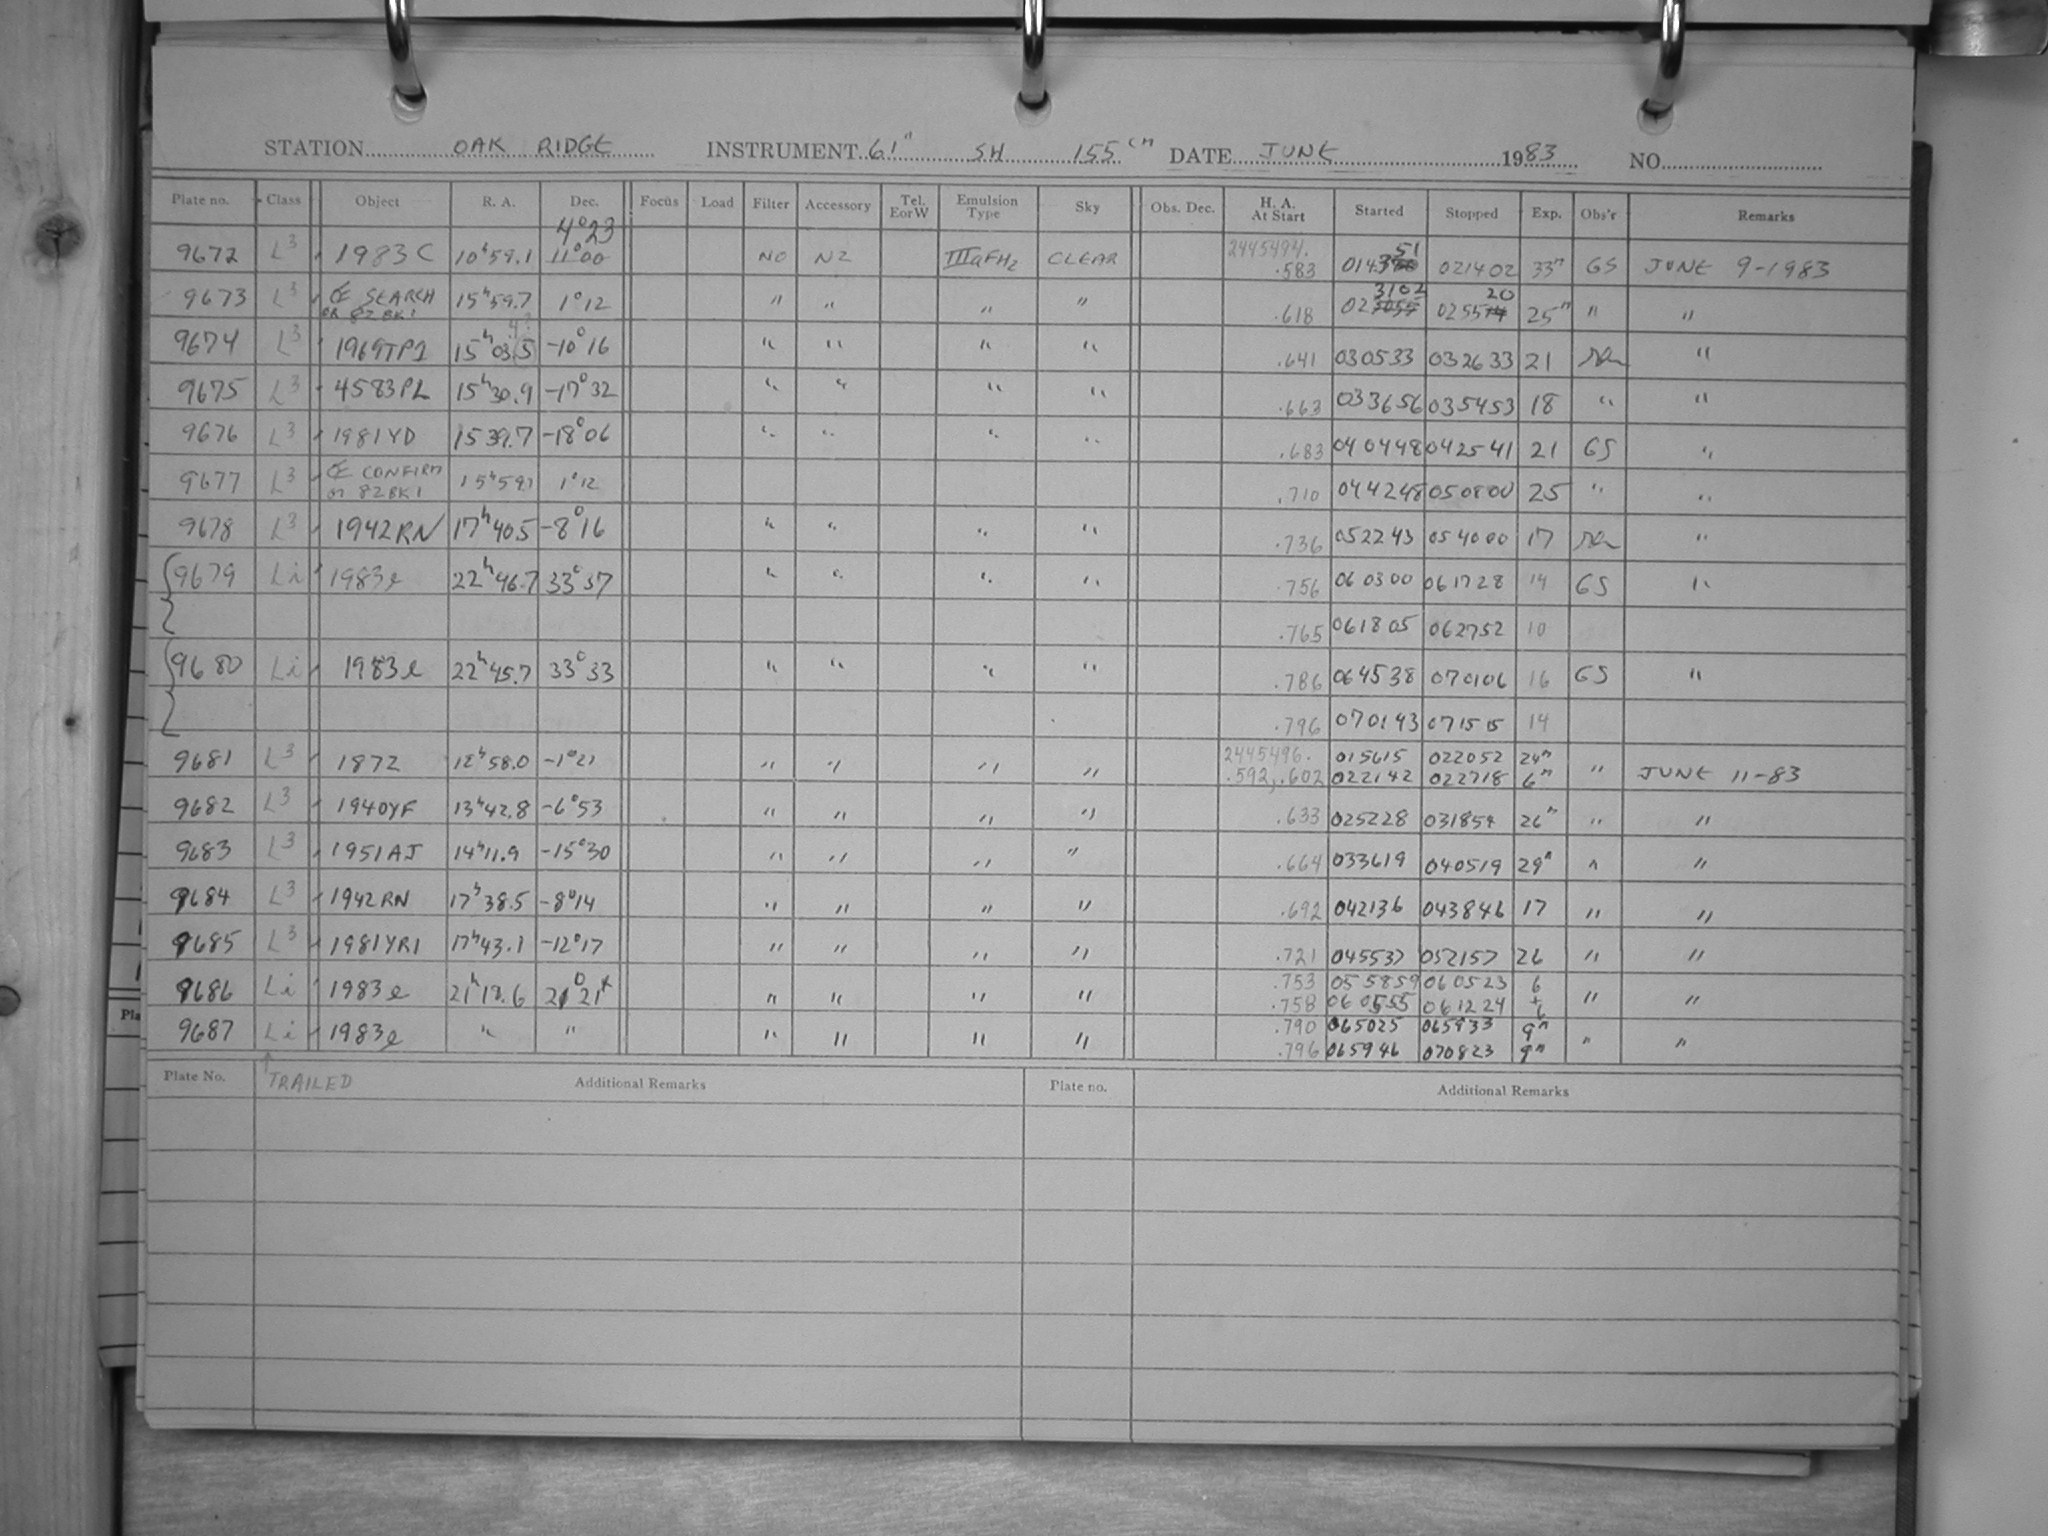 STATION OAK RIDGE INSTRUMENT 61" SH 155 cm DATE JUNE 1983 NO.
Plate no. Class Object R. A. Dec. Focus Load Filter Accessory Tel. E or W Emulsion Type Sky Obs. Dec. H. A. At Start Started Stopped Exp. Obs'r Remarks
4°23
9672 L3 1983 C 10h59.1 11°00 NO N2 IIIaFH2 CLEAR 2445494. .583 0143 51 021402 33m GS JUNE 9-1983
9673 L3 SEARCH OR 82BK1 15h59.7 1°12 " " " " .618 02 3102 0255 20 25m " "
9674 L3 1969TP1 15h03.5 -10°16 " " " " .641 030533 032633 21 "
9675 L3 4583PL 15h30.9 -17°32 " " " " .663 033656 035453 18 " "
9676 L3 1981YD 15 39.7 -18°06 " " " " .683 040448 042541 21 GS "
9677 L3 CONFIRM or 82BK1 15h59.7 1°12 .710 044248 050800 25 " "
9678 L3 1942RN 17h40.5 -8°16 " " " " .736 052243 054000 17 "
9679 Li 1983e 22h46.7 33°37 " " " " .756 060300 061728 14 GS "
.765 061805 062752 10
9680 Li 1983e 22h45.7 33°33 " " " " .786 064538 070106 16 GS "
.796 070143 071515 14
9681 L3 1872 12h58.0 -1°21 " " " " 2445496. 015615 022052 24m
.592, .602 022142 022718 6m " JUNE 11-83
9682 L3 1940YF 13h42.8 -6°53 " " " " .633 025228 031854 26m " "
9683 L3 1951AJ 14h11.9 -15°30 " " " " .664 033619 040519 29m " "
9684 L3 1942RN 17h38.5 -8°14 " " " " .692 042136 043846 17 " "
9685 L3 1981YR1 17h43.1 -12°17 " " " " .721 045537 052157 26 " "
9686 Li 1983e 21h18.6 21°21 " " " " .753 055859 060523 6
.758 060555 061224 +6 " "
9687 Li 1983e " " " " " " .790 065025 065933 9m
.796 065946 070823 9m " "
Plate No. TRAILED Additional Remarks Plate no. Additional Remarks
Pla